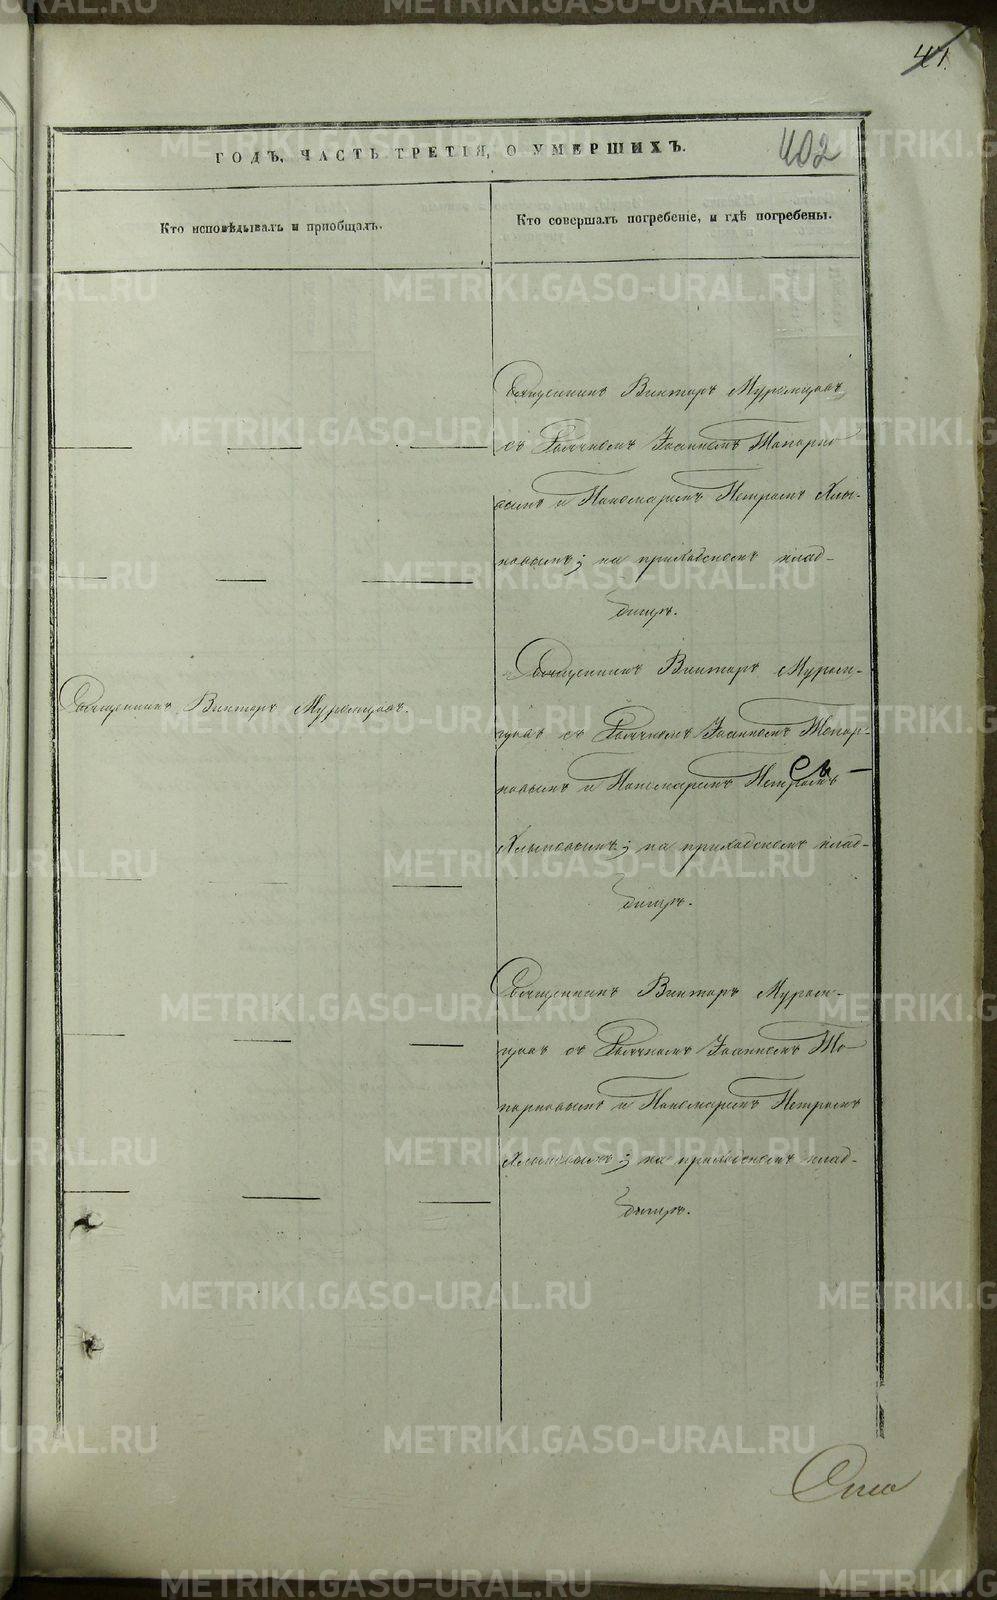 41
402
ГОДЪ, ЧАСТЬ ТРЕТІЯ, О УМЕРШИХЪ.
Кто исповѣдывалъ и пріобщалъ.
Кто совершалъ погребеніе, и гдѣ погребены.
Священникъ Викторъ Муромцовъ
съ Іоанномъ Топорко
вымъ и Пономаремъ Петромъ Хлы-
новымъ; на приходскомъ клад-
бищѣ.
Священникъ Викторъ Муромцовъ.
Священникъ Викторъ Муром-
цовъ съ Іоанномъ Топор-
ковымъ и Пономаремъ Петромъ
Хлыновымъ; на приходскомъ клад-
бищѣ.
Священникъ Викторъ Муром-
цовъ съ Іоанномъ То-
порковымъ и Пономаремъ Петромъ
Хлыновымъ; на приходскомъ клад-
бищѣ.
METRIKI.GASO-URAL.RU